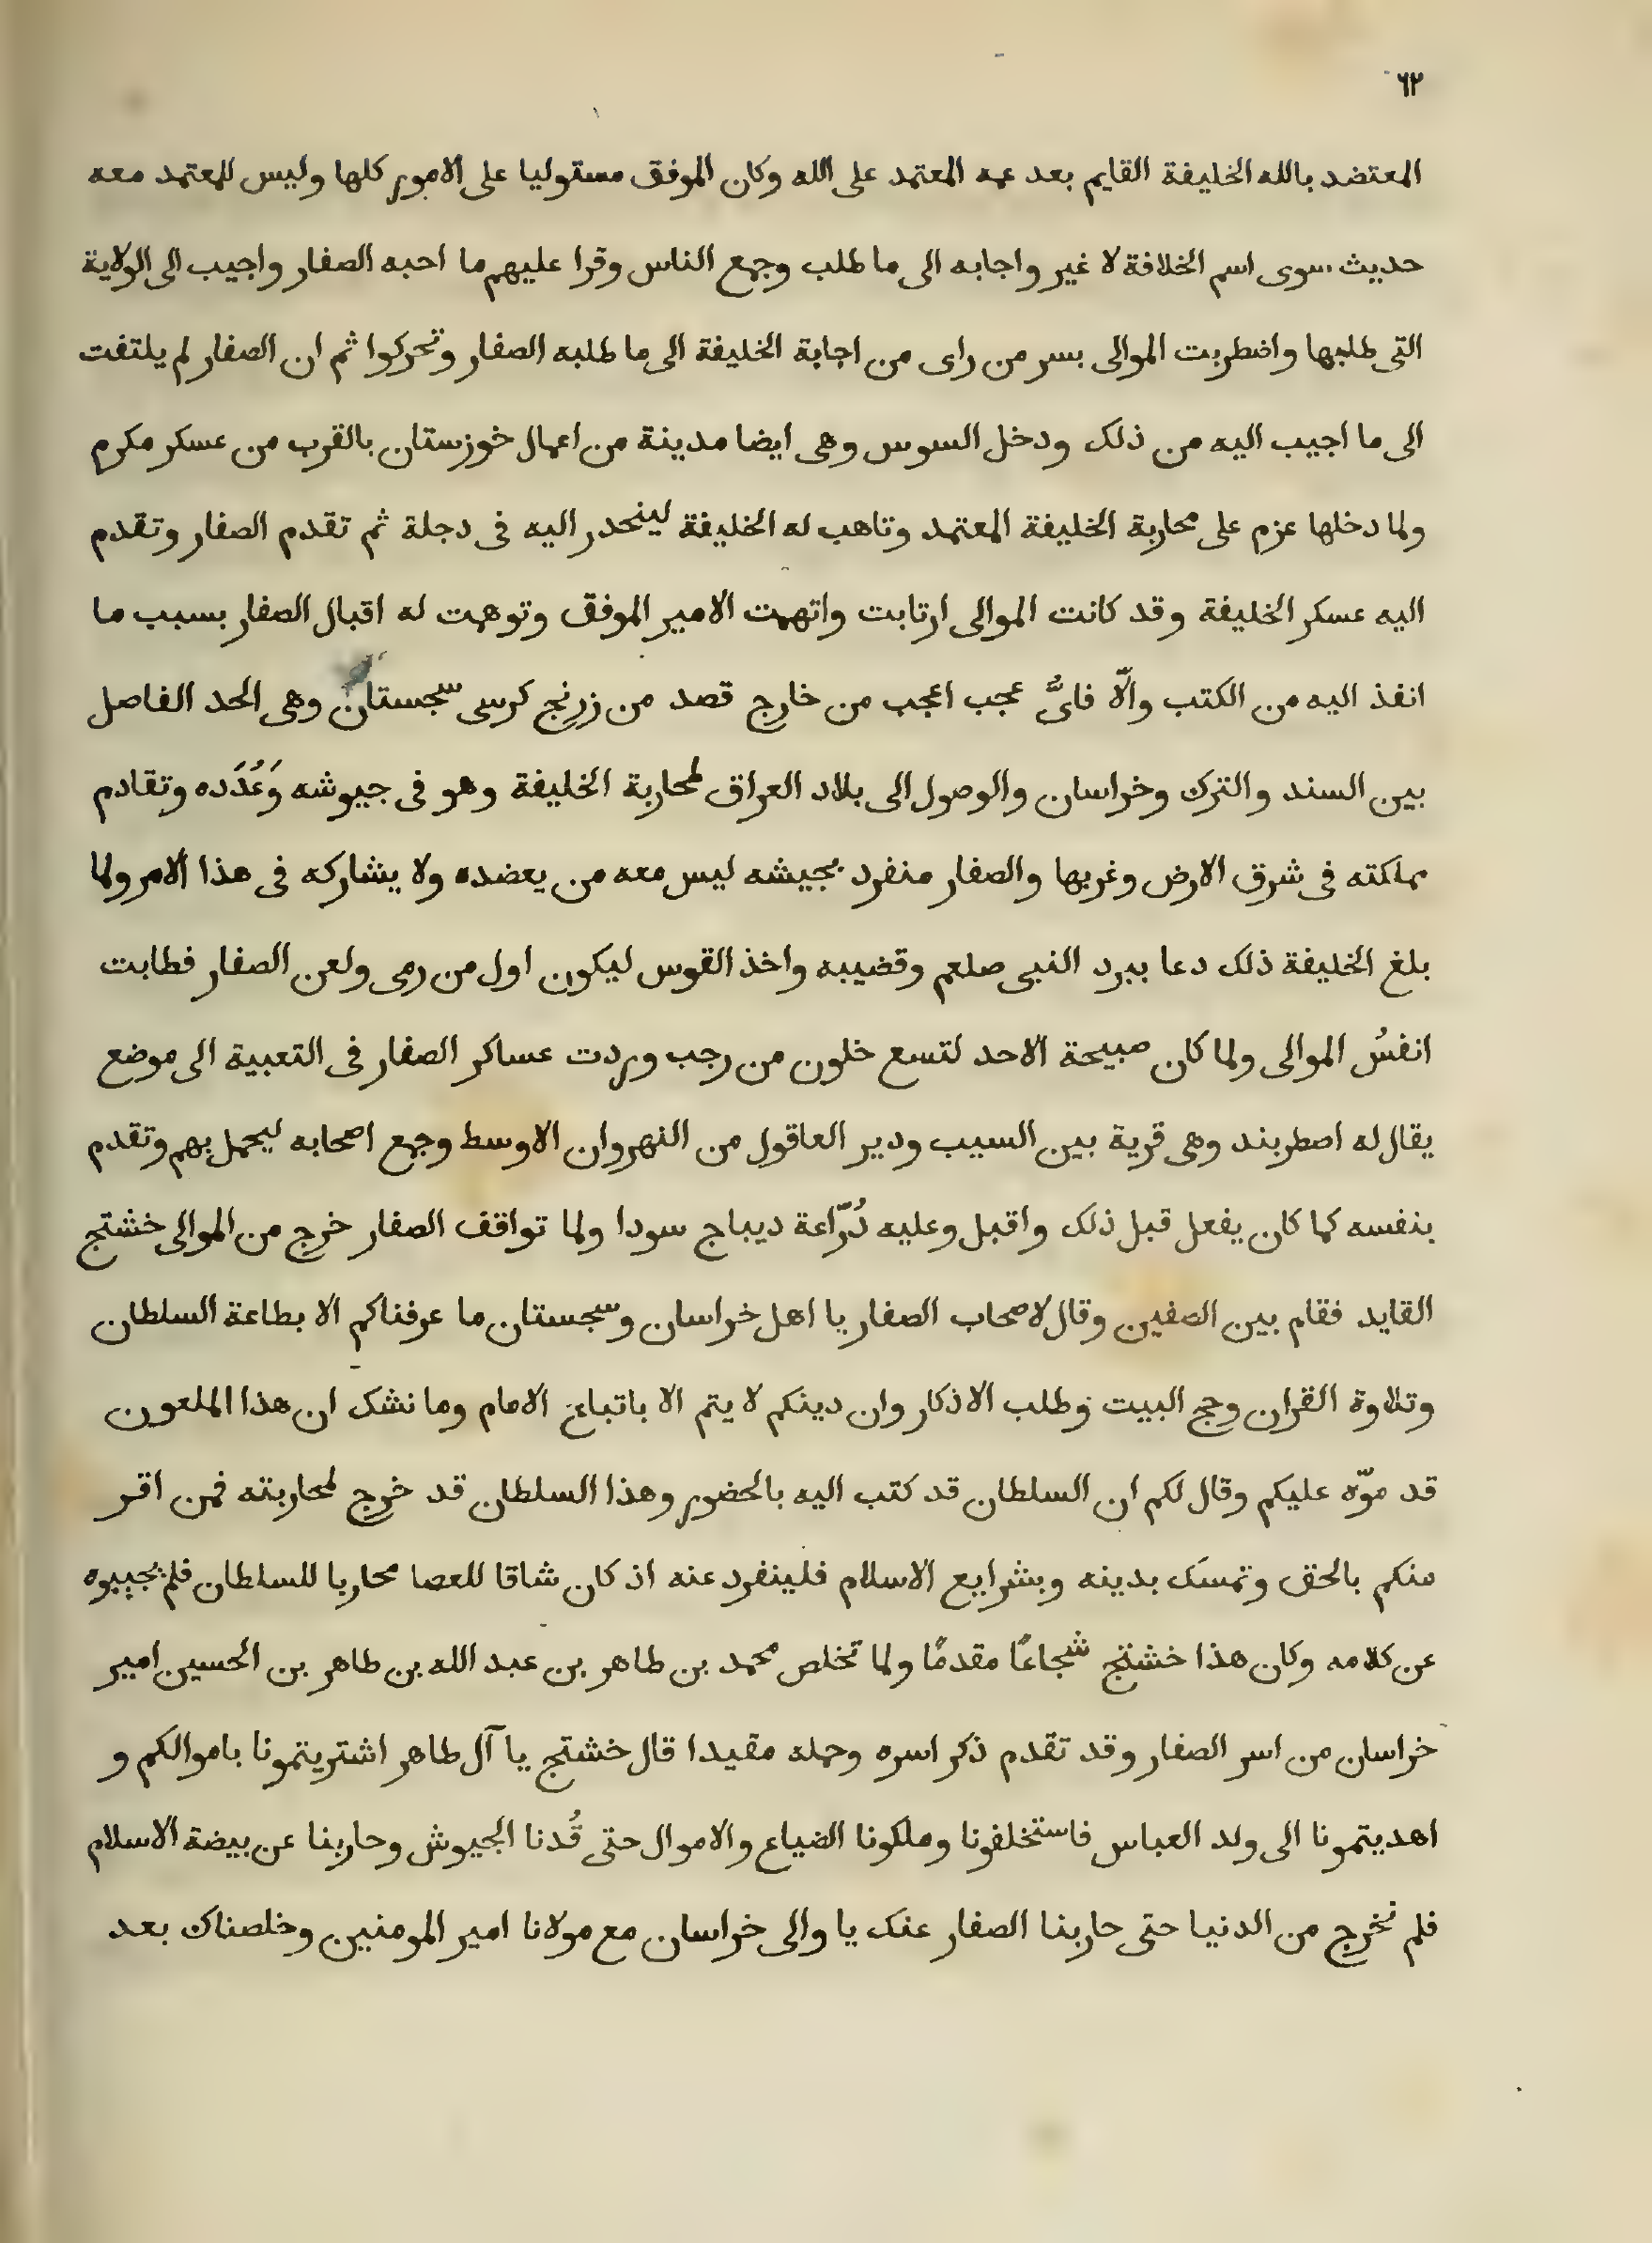 ٦٢
المعتضد بالله الخليفة القايم بعد عمه المعتمد على الله وكان الموفق مستوليا على الامور كلها وليس للمعتمد معه
حديث سوى اسم الخلافة لا غير واجابه الى ما طلب وجمع الناس وقرا عليهم ما احبه الصفار واجيب الى الولاية
التى طلبها واضطربت الموالى بسر من راى من اجابة الخليفة الى ما طلبه الصفار وتحركوا ثم ان الصفار لم يلتفت
الى ما اجيب اليه من ذلك ودخل السوس وهى ايضا مدينة من اعمال خوزستان بالقرب من عسكر مكرم
ولما دخلها عزم على محاربة الخليفة المعتمد وتاهب له الخليفة لينحدر اليه فى دجلة ثم تقدم الصفار وتقدم
اليه عسكر الخليفة وقد كانت الموالى ارتابت واتهمت الامير الموفق وتوهمت له اقبال الصفار بسبب ما
انفذ اليه من الكتب والّا فاىُّ عجب اعجب من خارج قصد من زرنج كرسى سجستان وهى الحد الفاصل
بين السند والترك وخراسان والوصول الى بلاد العراق لمحاربة الخليفة وهو فى جيوشه وَعُدَده وتقادم
مملكته فى شرق الارض وغربها والصفار منفرد بجيشه ليس معه من يعضده ولا يشاركه فى هذا الامر ولما
بلغ الخليفة ذلك دعا ببرد النبى صلعم وقضيبه واخذ القوس ليكون اول من رمى ولعن الصفار فطابت
انفسُ الموالى ولما كان صبيحة الاحد لتسع خلون من رجب وردت عساكر الصفار فى التعبية الى موضع
يقال له اصطربند وهى قرية بين السيب ودير العاقول من النهروان الاوسط وجمع اصحابه ليحمل بهم وتقدم
بنفسه كما كان يفعل قبل ذلك واقبل وعليه دُرّاعة ديباج سودا ولما تواقف الصفار خرج من الموالى خشتج
القايد فقام بين الصفين وقال لاصحاب الصفار يا اهل خراسان وسجستان ما عرفناكم الا بطاعة السلطان
وتلاوة القران وحج البيت وطلب الاذكار وان دينكم لا يتم الا باتباع الامام وما نشك ان هذا الملعون
قد موّه عليكم وقال لكم ان السلطان قد كتب اليه بالحضور وهذا السلطان قد خرج لمحاربته فمن اقر
منكم بالحق وتمسك بدينه وبشرايع الاسلام فلينفرد عنه اذ كان شاقا للعصا محاربا للسلطان فلم يجيبوه
عن كلامه وكان هذا خشتج شجاعًا مقدمًا ولما تخلص محمد بن طاهر بن عبد الله بن طاهر بن الحسين امير
خراسان من اسر الصفار وقد تقدم ذكر اسره وحمله مقيدا قال خشتج يا آل طاهر اشتريتمونا باموالكم و
اهديتمونا الى ولد العباس فاستخلفونا وملكونا الضياع والاموال حتى قُدنا الجيوش وحاربنا عن بيضة الاسلام
فلم نخرج من الدنيا حتى حاربنا الصفار عنك يا والى خراسان مع مولانا امير المومنين وخلصناك بعد